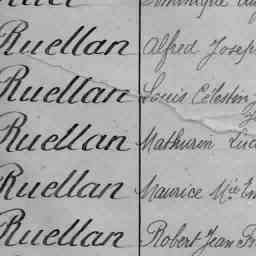 Dominique
Ruellan Alfred Josep
Ruellan Louis Célestin
Ruellan Mathurin Luc
Ruellan Maurice Mie Em
Ruellan Robert Jean Fr